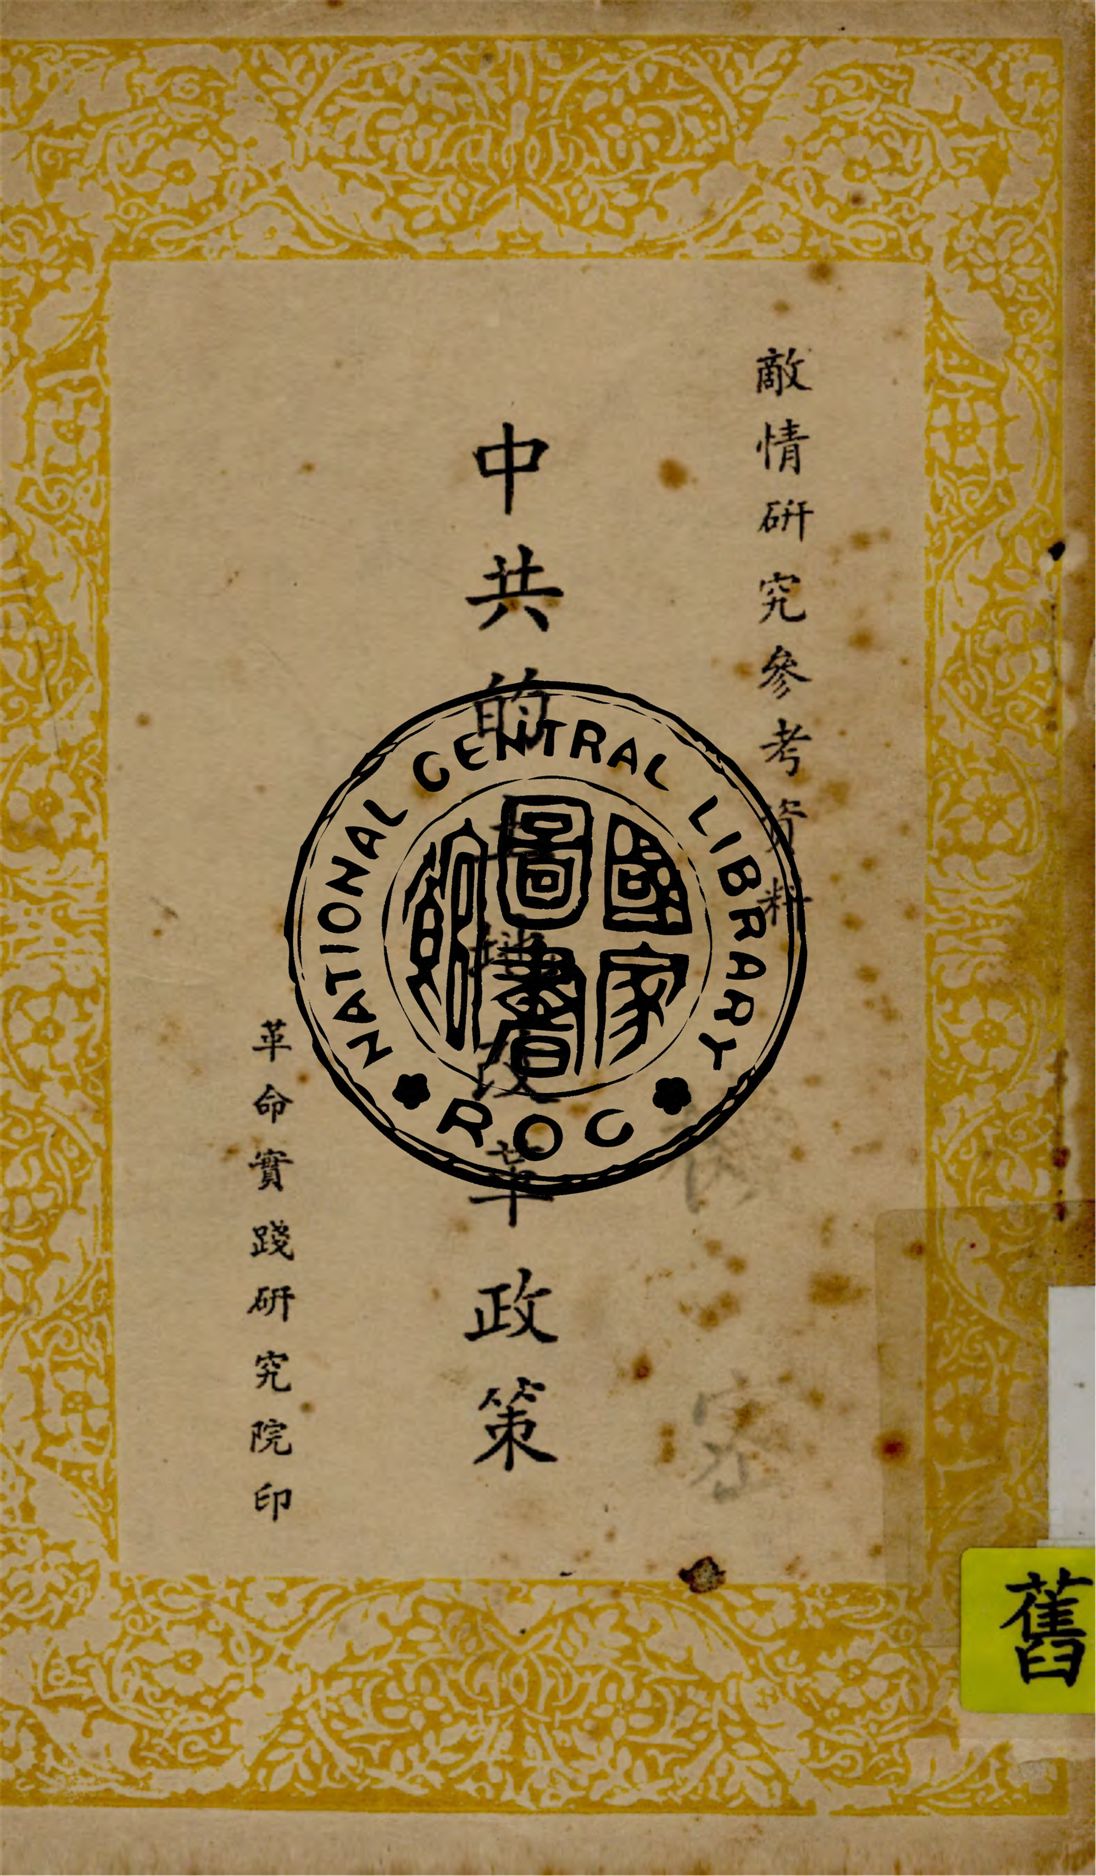 敵情硏究參考資料
機密
中共的土地改革政策
革命實踐硏究院印
NATIONAL CENTRAL LIBRARY
ROC
國家圖書館
舊